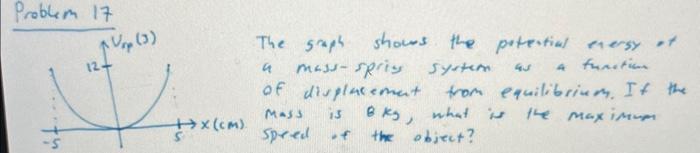 Problem 17
Usp (J)
12
x (cm)
-5
5
The graph shows the potential energy of
a mass-spring system as a function
of displacement from equilibrium. If the
mass is 8 kg, what is the maximum
speed of the object?